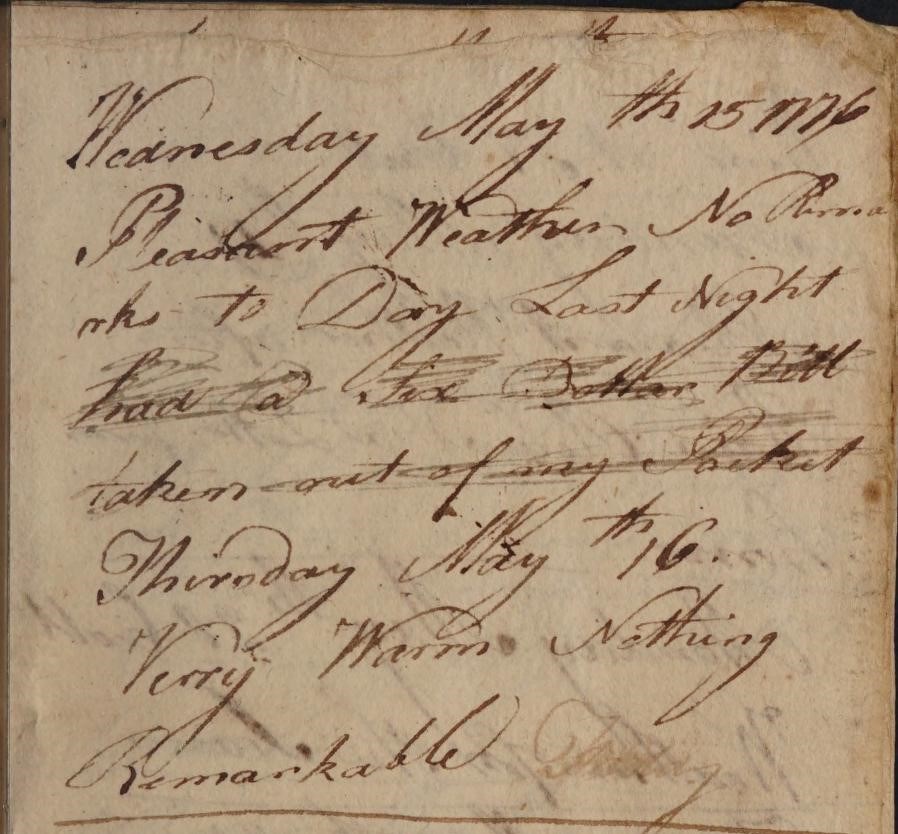 Wednesday May th 15 1776
Pleasant Weather No Rema
rks to Day Last Night
had a Six Dollar Bill
taken out of my Pocket
Thirsday May th 16.
Verry Warm Nothing
Remarkable Today